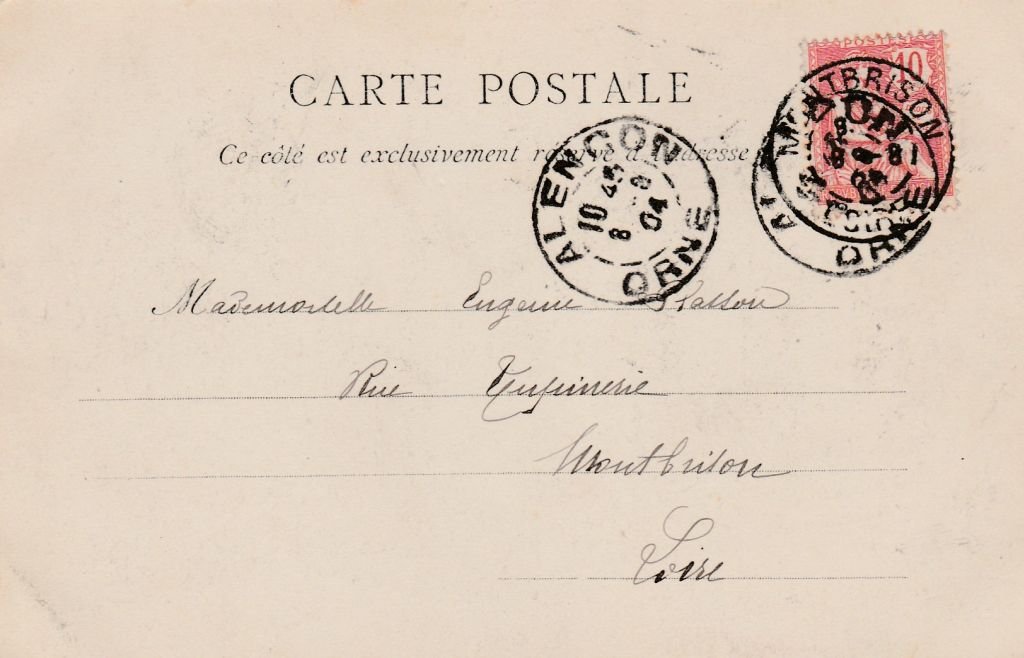 POSTES 10
CARTE POSTALE
Ce côté est exclusivement réservé à l'adresse
ALENCON
10 45
8 8
04
ORNE
MONTBRISON
ORNE
Mademoiselle Eugenie
Rue Tupinerie
Montbrison
Loire